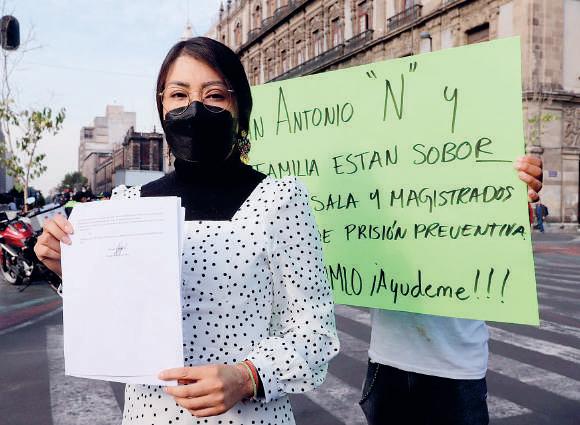 N ANTONIO "N" Y
FAMILIA ESTAN SOBOR
SALA Y MAGISTRADOS
E PRISIÓN PREVENTIVA
MLO ¡Ayudeme!!!